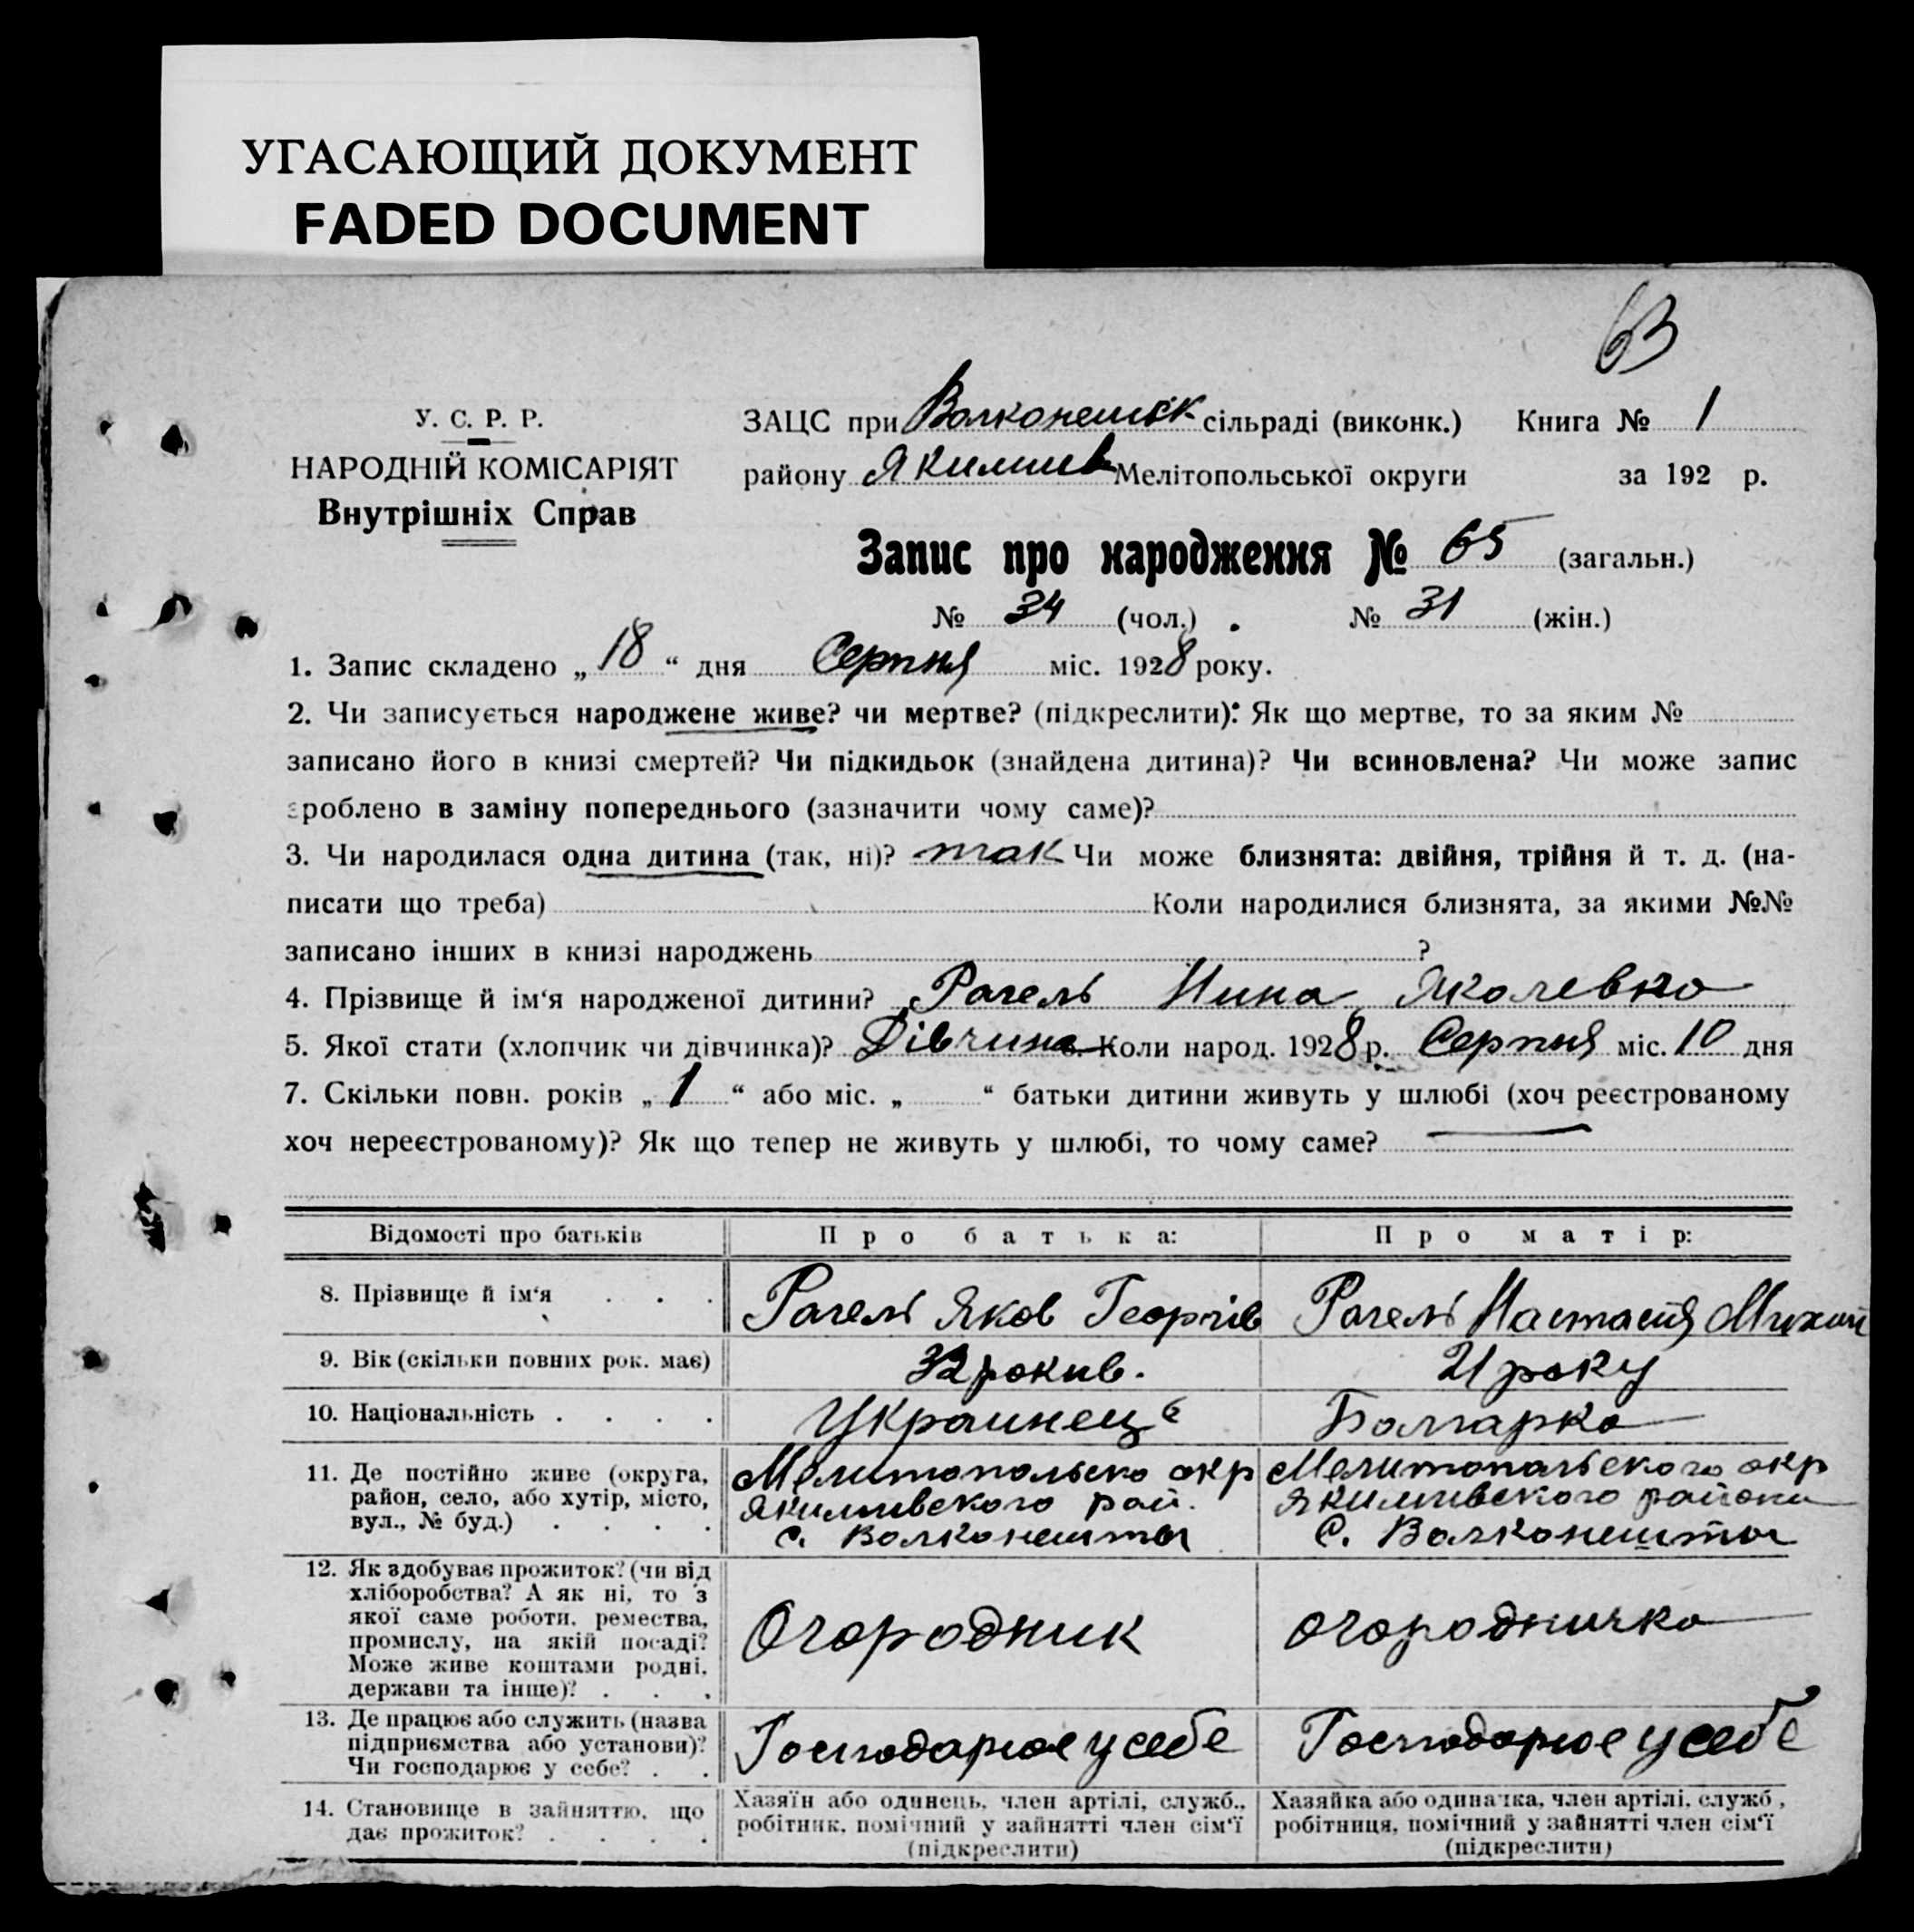 УГАСАЮЩИЙ ДОКУМЕНТ
FADED DOCUMENT
63
У. С. Р. Р.
НАРОДНІЙ КОМІСАРІЯТ
Внутрішніх Справ
ЗАЦС при Волконешск сільраді (виконк.) Книга № 1
району Якимив Мелітопольської округи за 192 р.
Запис про народження № 65 (загальн.)
№ 34 (чол.) № 31 (жін.)
1. Запис складено „ 18 “ дня Серпня міс. 1928 року.
2. Чи записується народжене живе? чи мертве? (підкреслити): Як що мертве, то за яким №
записано його в книзі смертей? Чи підкидьок (знайдена дитина)? Чи всиновлена? Чи може запис
зроблено в заміну попереднього (зазначити чому саме)?
3. Чи народилася одна дитина (так, ні)? так Чи може близнята: двійня, трійня й т. д. (на-
писати що треба) Коли народилися близнята, за якими №№
записано інших в книзі народжень ?
4. Прізвище й ім‘я народженої дитини? Рагель Нина Яколевна
5. Якої стати (хлопчик чи дівчинка)? Дівчина 6. Коли народ. 1928 р. Серпня міс. 10 дня
7. Скільки повн. років „ 1 “ або міс. „ “ батьки дитини живуть у шлюбі (хоч реєстрованому
хоч нереєстрованому)? Як що тепер не живуть у шлюбі, то чому саме?
Відомості про батьків Про батька: Про матір:
8. Прізвище й ім‘я . . . Рагель Яков Георгів Рагель Настасія Михай
9. Вік (скільки повних рок. має) 32 рокив. 21 року
10. Національність . . . . Украинець Болгарка
11. Де постійно живе (округа,
район, село, або хутір, місто,
вул., № буд.) . . . .
Мелитопольско окр
Якимивского рай.
с. Волконешты
Мелитопольского окр
Якимивского района
С. Волконешты
12. Як здобуває прожиток? (чи від
хліборобства? А як ні, то з
якої саме роботи, ремества,
промислу, на якій посаді?
Може живе коштами родні,
держави та інше)? . . .
Огородник
огородничка
13. Де працює або служить (назва
підприємства або установи)?
Чи господарює у себе? . .
Господарює у себе
Господарює у себе
14. Становище в зайняттю, що
дає прожиток? . . . .
Хазяїн або одинець, член артілі, служб.,
робітник, помічний у зайнятті член сім‘ї
(підкреслити)
Хазяйка або одиначка, член артілі, служб ,
робітниця, помічний у зайнятті член сім‘ї
(підкреслити)